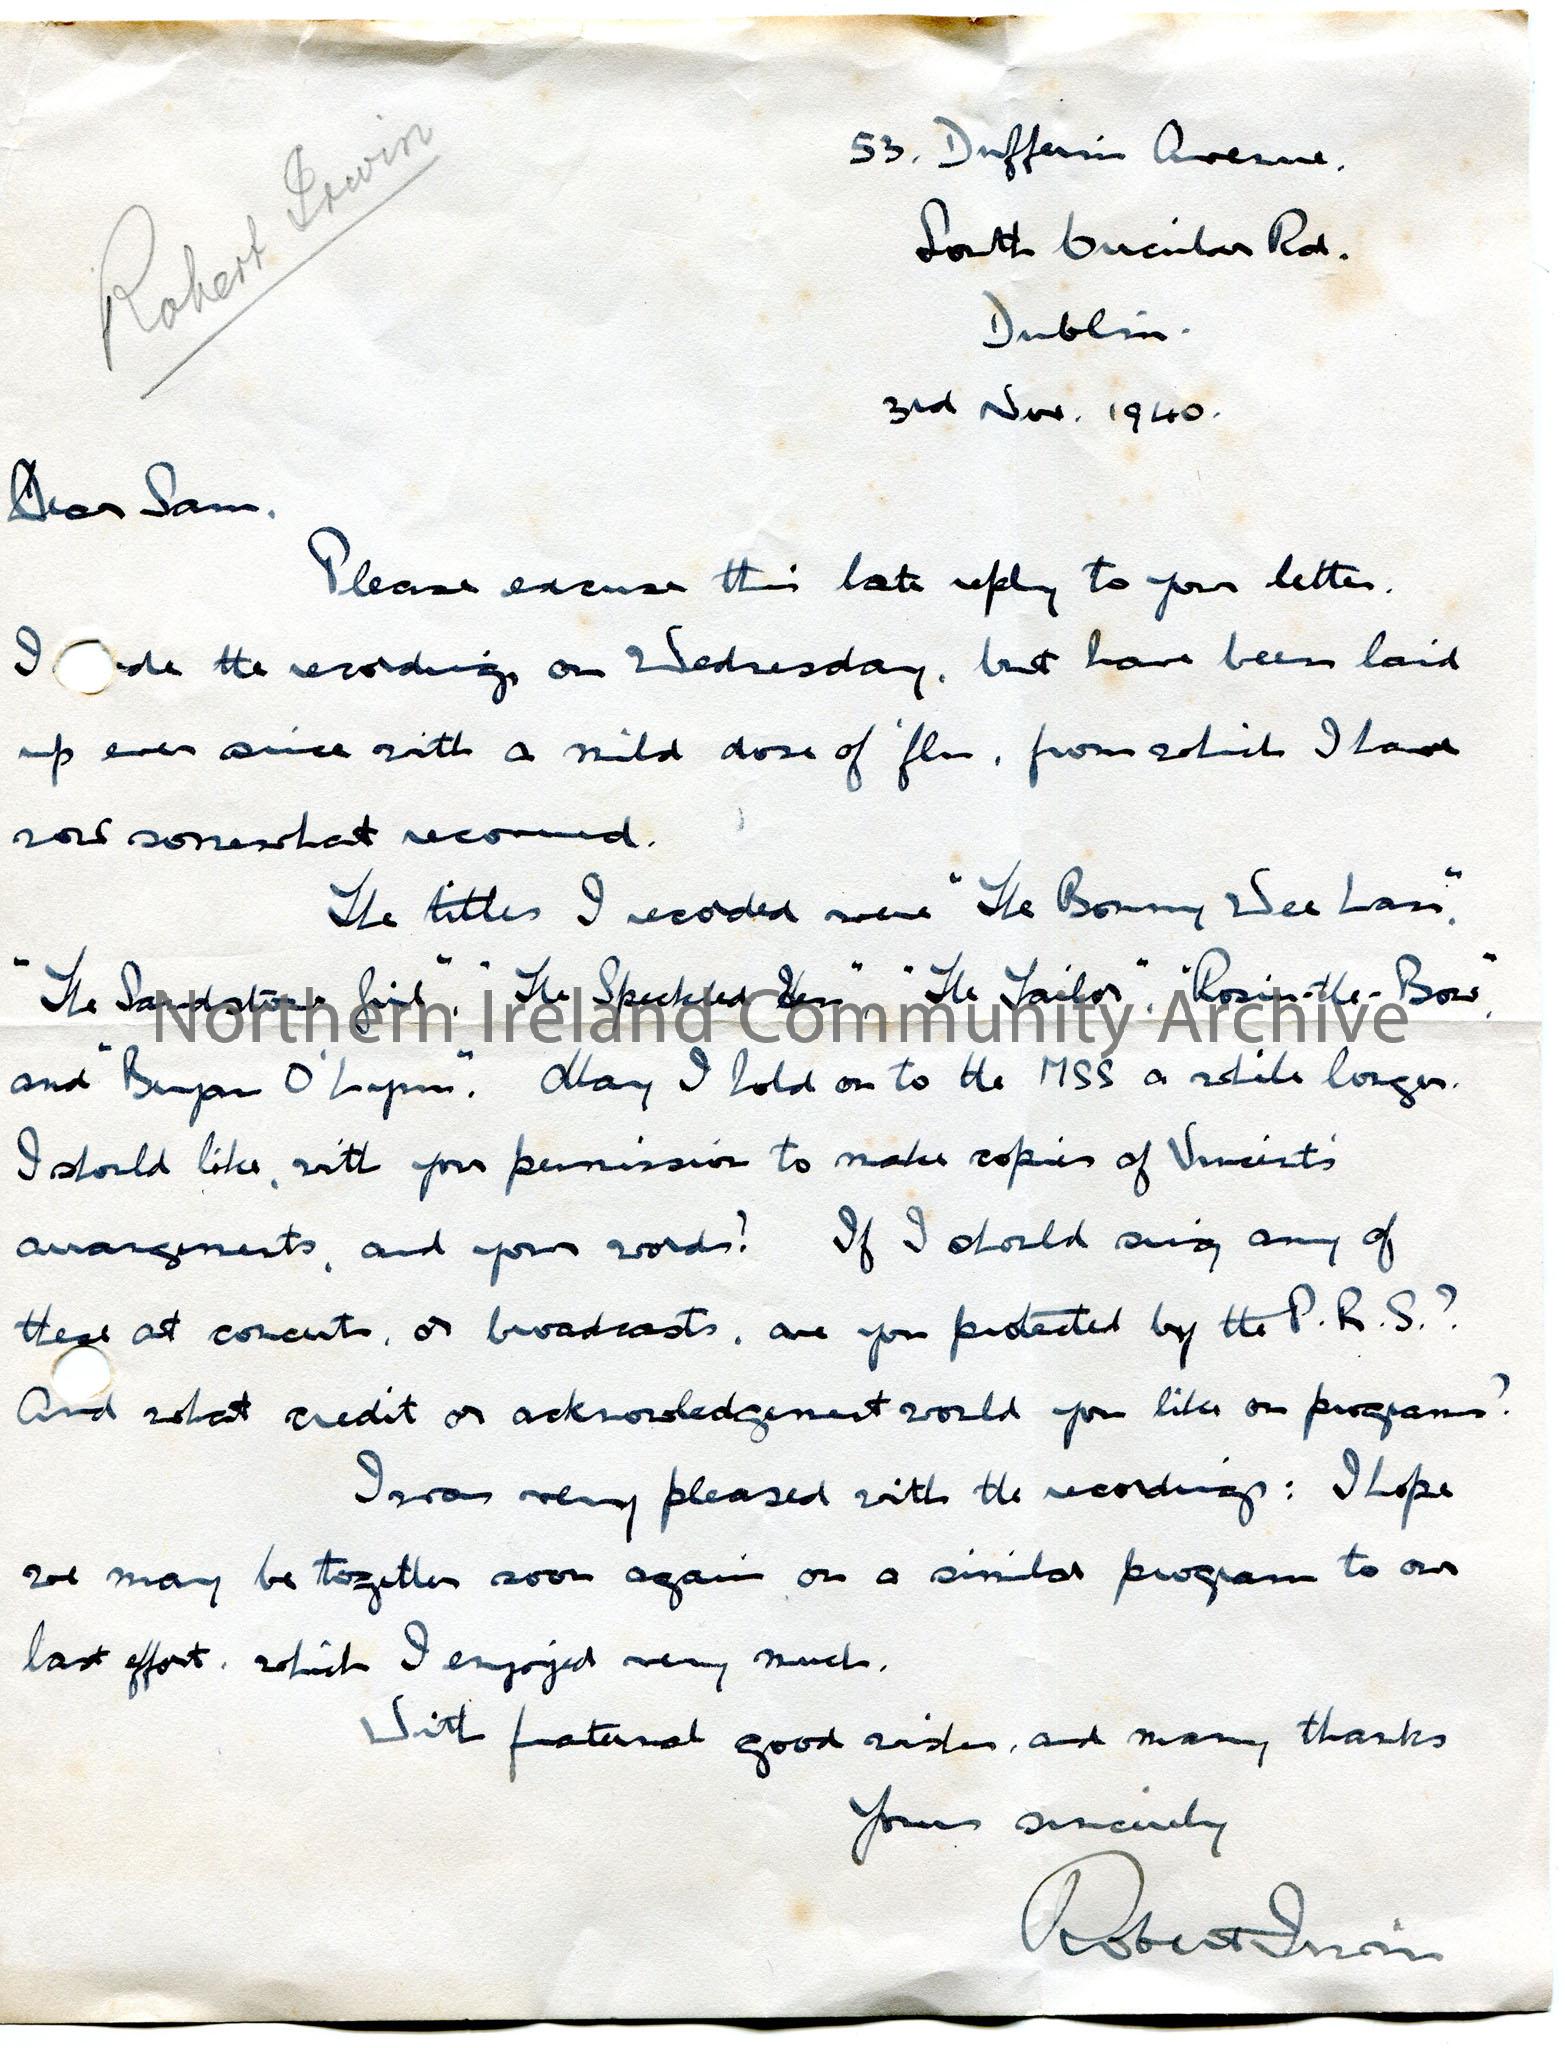 Robert Irwin
53. Dufferin Avenue.
South Circular Rd.
Dublin.
3rd Nov. 1940.
Dear Sam,
Please excuse this late reply to your letter.
I de the recordings on Wednesday, but have been laid
up ever since with a mild dose of 'flu, from which I have
now somewhat recovered.
The titles I recorded were "The Bonny Wee Lass",
"The Sandstone Girl", "The Speckled Hen", "The Tailor", "Rosin-the-Bow",
Northern Ireland Community Archive
and "Bryan O'Lynn". May I hold on to the MSS a while longer.
I should like, with your permission to make copies of Vincent's
arrangements, and your words? If I should sing any of
these at concerts, or broadcasts, are you protected by the P.R.S.?
And what credit or acknowledgement would you like on programs?
I was very pleased with the recordings: I hope
we may be together soon again on a similar program to our
last effort, which I enjoyed very much.
With fraternal good wishes, and many thanks
Yours sincerely
Robert Irwin